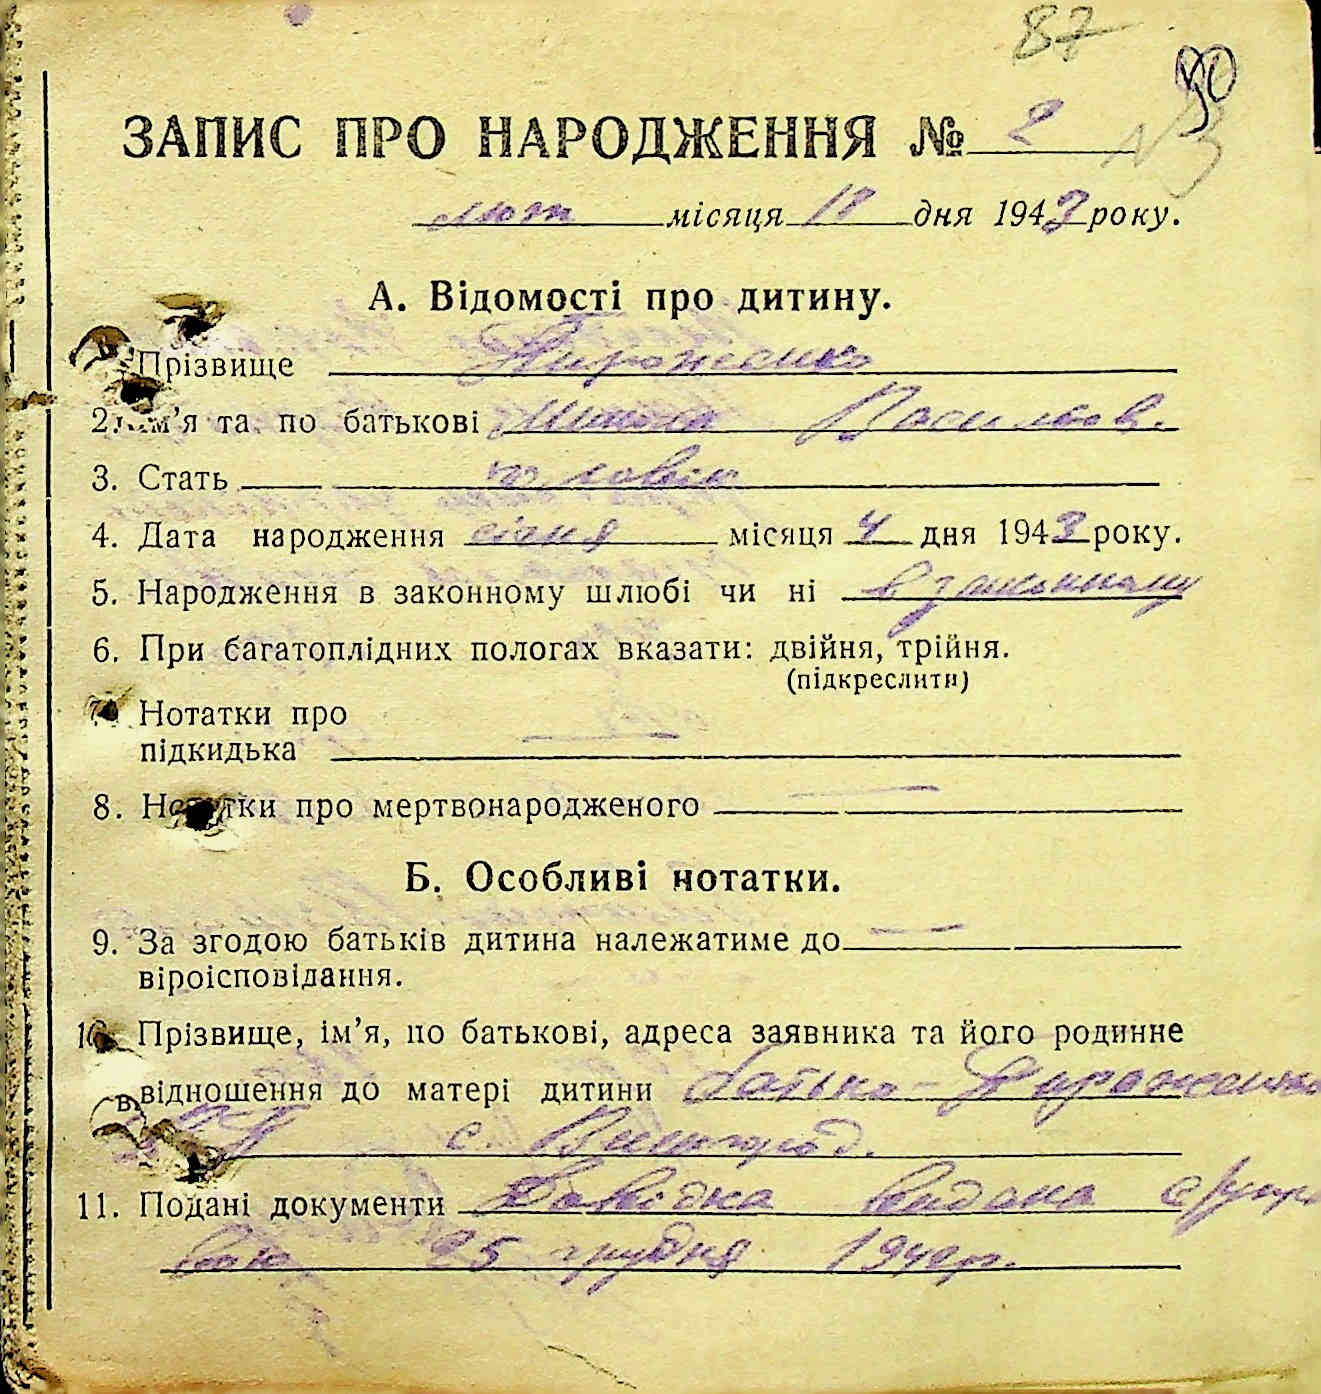 87
90
ЗАПИС ПРО НАРОДЖЕННЯ № 2
N3
лют місяця 18 дня 1943 року.
А. Відомості про дитину.
Прізвище
2. м'я та по батькові Микола Васильов.
3. Стать чоловік
4. Дата народження січня місяця 4 дня 1943 року.
5. Народження в законному шлюбі чи ні в законному
6. При багатоплідних пологах вказати: двійня, трійня.
(підкреслити)
7. Нотатки про
підкидька
8. Нотатки про мертвонародженого
Б. Особливі нотатки.
9. За згодою батьків дитина належатиме до
віроісповідання.
10. Прізвище, ім'я, по батькові, адреса заявника та його родинне
відношення до матері дитини батько -
с. Вишгород.
11. Подані документи Довідка видана с/упра
вою 25 грудня 1942р.